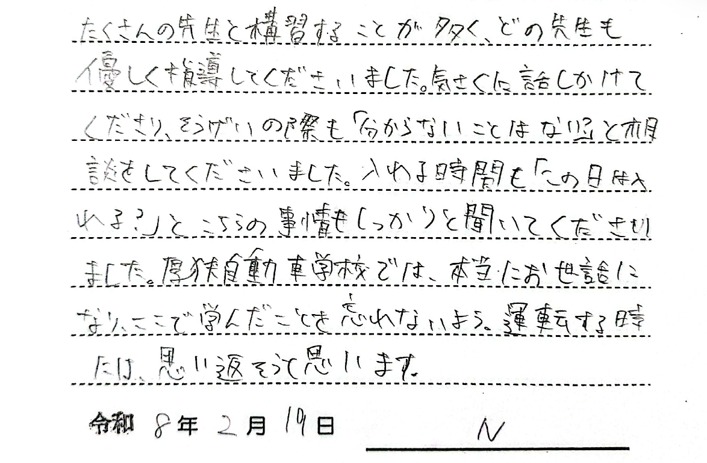 たくさんの先生と構習することが多く、どの先生も
優しく指導してくださいました。気さくに話しかけて
くださり、そうげいの際も「分からないことはない?」と相
談をしてくださいました。入れる時間も「この日は入
れる?」とこちらの事情もしっかりと聞いてくださり
ました。厚狭自動車学校では、本当にお世話に
なり、ここで学んだことを忘れないよう。運転する時
には、思い返そうと思います。
令和 8年 2月 19日 N